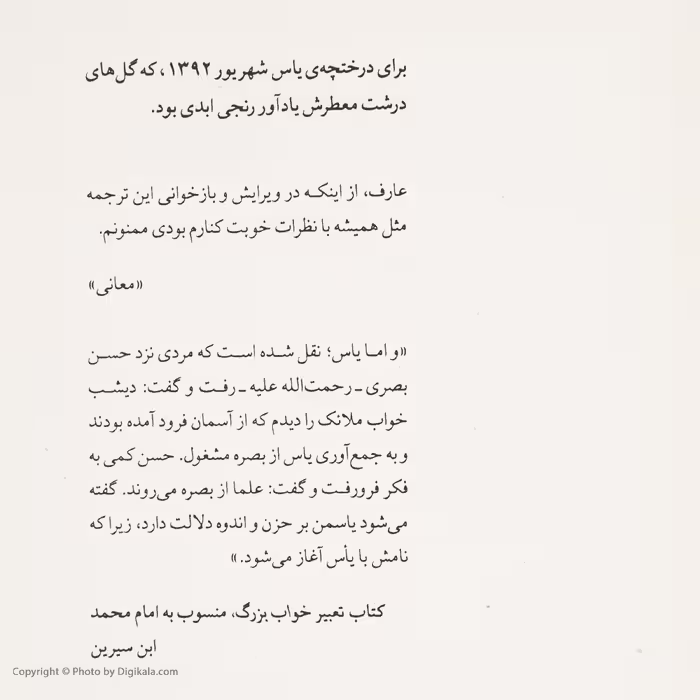 برای درختچه‌ی یاس شهریور ۱۳۹۲، که گل‌های
درشت معطرش یادآور رنجی ابدی بود.
عارف، از اینکه در ویرایش و بازخوانی این ترجمه
مثل همیشه با نظرات خوبت کنارم بودی ممنونم.
«معانی»
«و اما یاس؛ نقل شده است که مردی نزد حسن
بصری ـ رحمت‌الله علیه ـ رفت و گفت: دیشب
خواب ملائک را دیدم که از آسمان فرود آمده بودند
و به جمع‌آوری یاس از بصره مشغول. حسن کمی به
فکر فرورفت و گفت: علما از بصره می‌روند. گفته
می‌شود یاسمن بر حزن و اندوه دلالت دارد، زیرا که
نامش با یأس آغاز می‌شود.»
کتاب تعبیر خواب بزرگ، منسوب به امام محمد
ابن سیرین
Copyright © Photo by Digikala.com